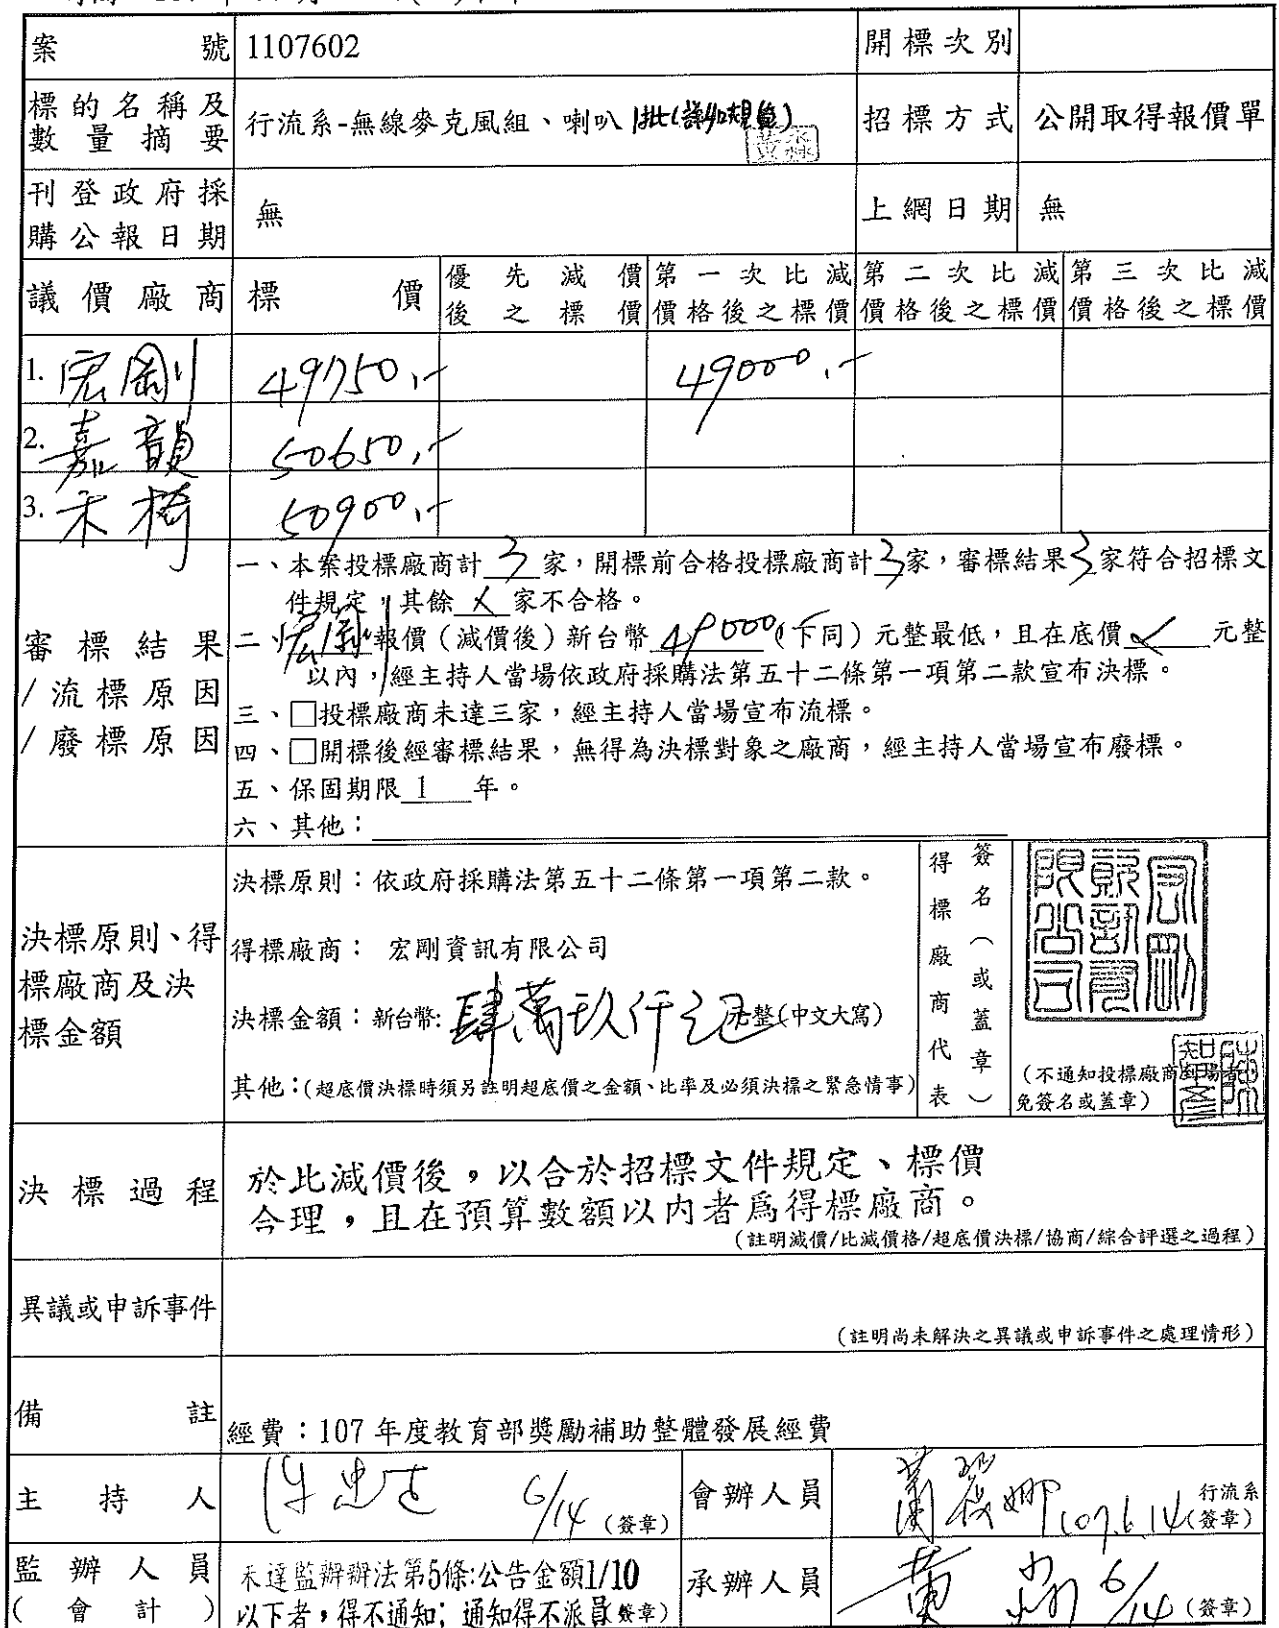 案號 1107602 開標次別
標的名稱及數量摘要 行流系-無線麥克風組、喇叭1批(詳如規範) 招標方式 公開取得報價單
刊登政府採購公報日期 無 上網日期 無
議價廠商 標價 優先減價後之標價 第一次比減價格後之標價 第二次比減價格後之標價 第三次比減價格後之標價
1. 宏剛 49750,- 49000,-
2. 嘉韻 50650,-
3. 禾椅 50900,-
審標結果/流標原因/廢標原因
一、本案投標廠商計 3 家,開標前合格投標廠商計 3 家,審標結果 3 家符合招標文
件規定,其餘 ㄨ 家不合格。
二、宏剛 報價(減價後)新台幣 49000 (下同)元整最低,且在底價 ㄨ 元整
以內,經主持人當場依政府採購法第五十二條第一項第二款宣布決標。
三、□投標廠商未達三家,經主持人當場宣布流標。
四、□開標後經審標結果,無得為決標對象之廠商,經主持人當場宣布廢標。
五、保固期限 1 年。
六、其他:
決標原則、得標廠商及決標金額
決標原則:依政府採購法第五十二條第一項第二款。
得標廠商: 宏剛資訊有限公司
決標金額:新台幣:肆萬玖仟元整(中文大寫)
其他:(超底價決標時須另註明超底價之金額、比率及必須決標之緊急情事)
得標廠商代表簽名(或蓋章)
宏剛資訊有限公司
(不通知投標廠商到場者免簽名或蓋章)
決標過程
於比減價後,以合於招標文件規定、標價
合理,且在預算數額以內者為得標廠商。
(註明減價/比減價格/超底價決標/協商/綜合評選之過程)
異議或申訴事件
(註明尚未解決之異議或申訴事件之處理情形)
備註 經費:107 年度教育部獎勵補助整體發展經費
主持人 6/14 (簽章) 會辦人員 107.6.14 行流系(簽章)
監辦人員(會計)
未達監辦辦法第5條:公告金額1/10
以下者,得不通知; 通知得不派員 簽章)
承辦人員 黃 6/14 (簽章)